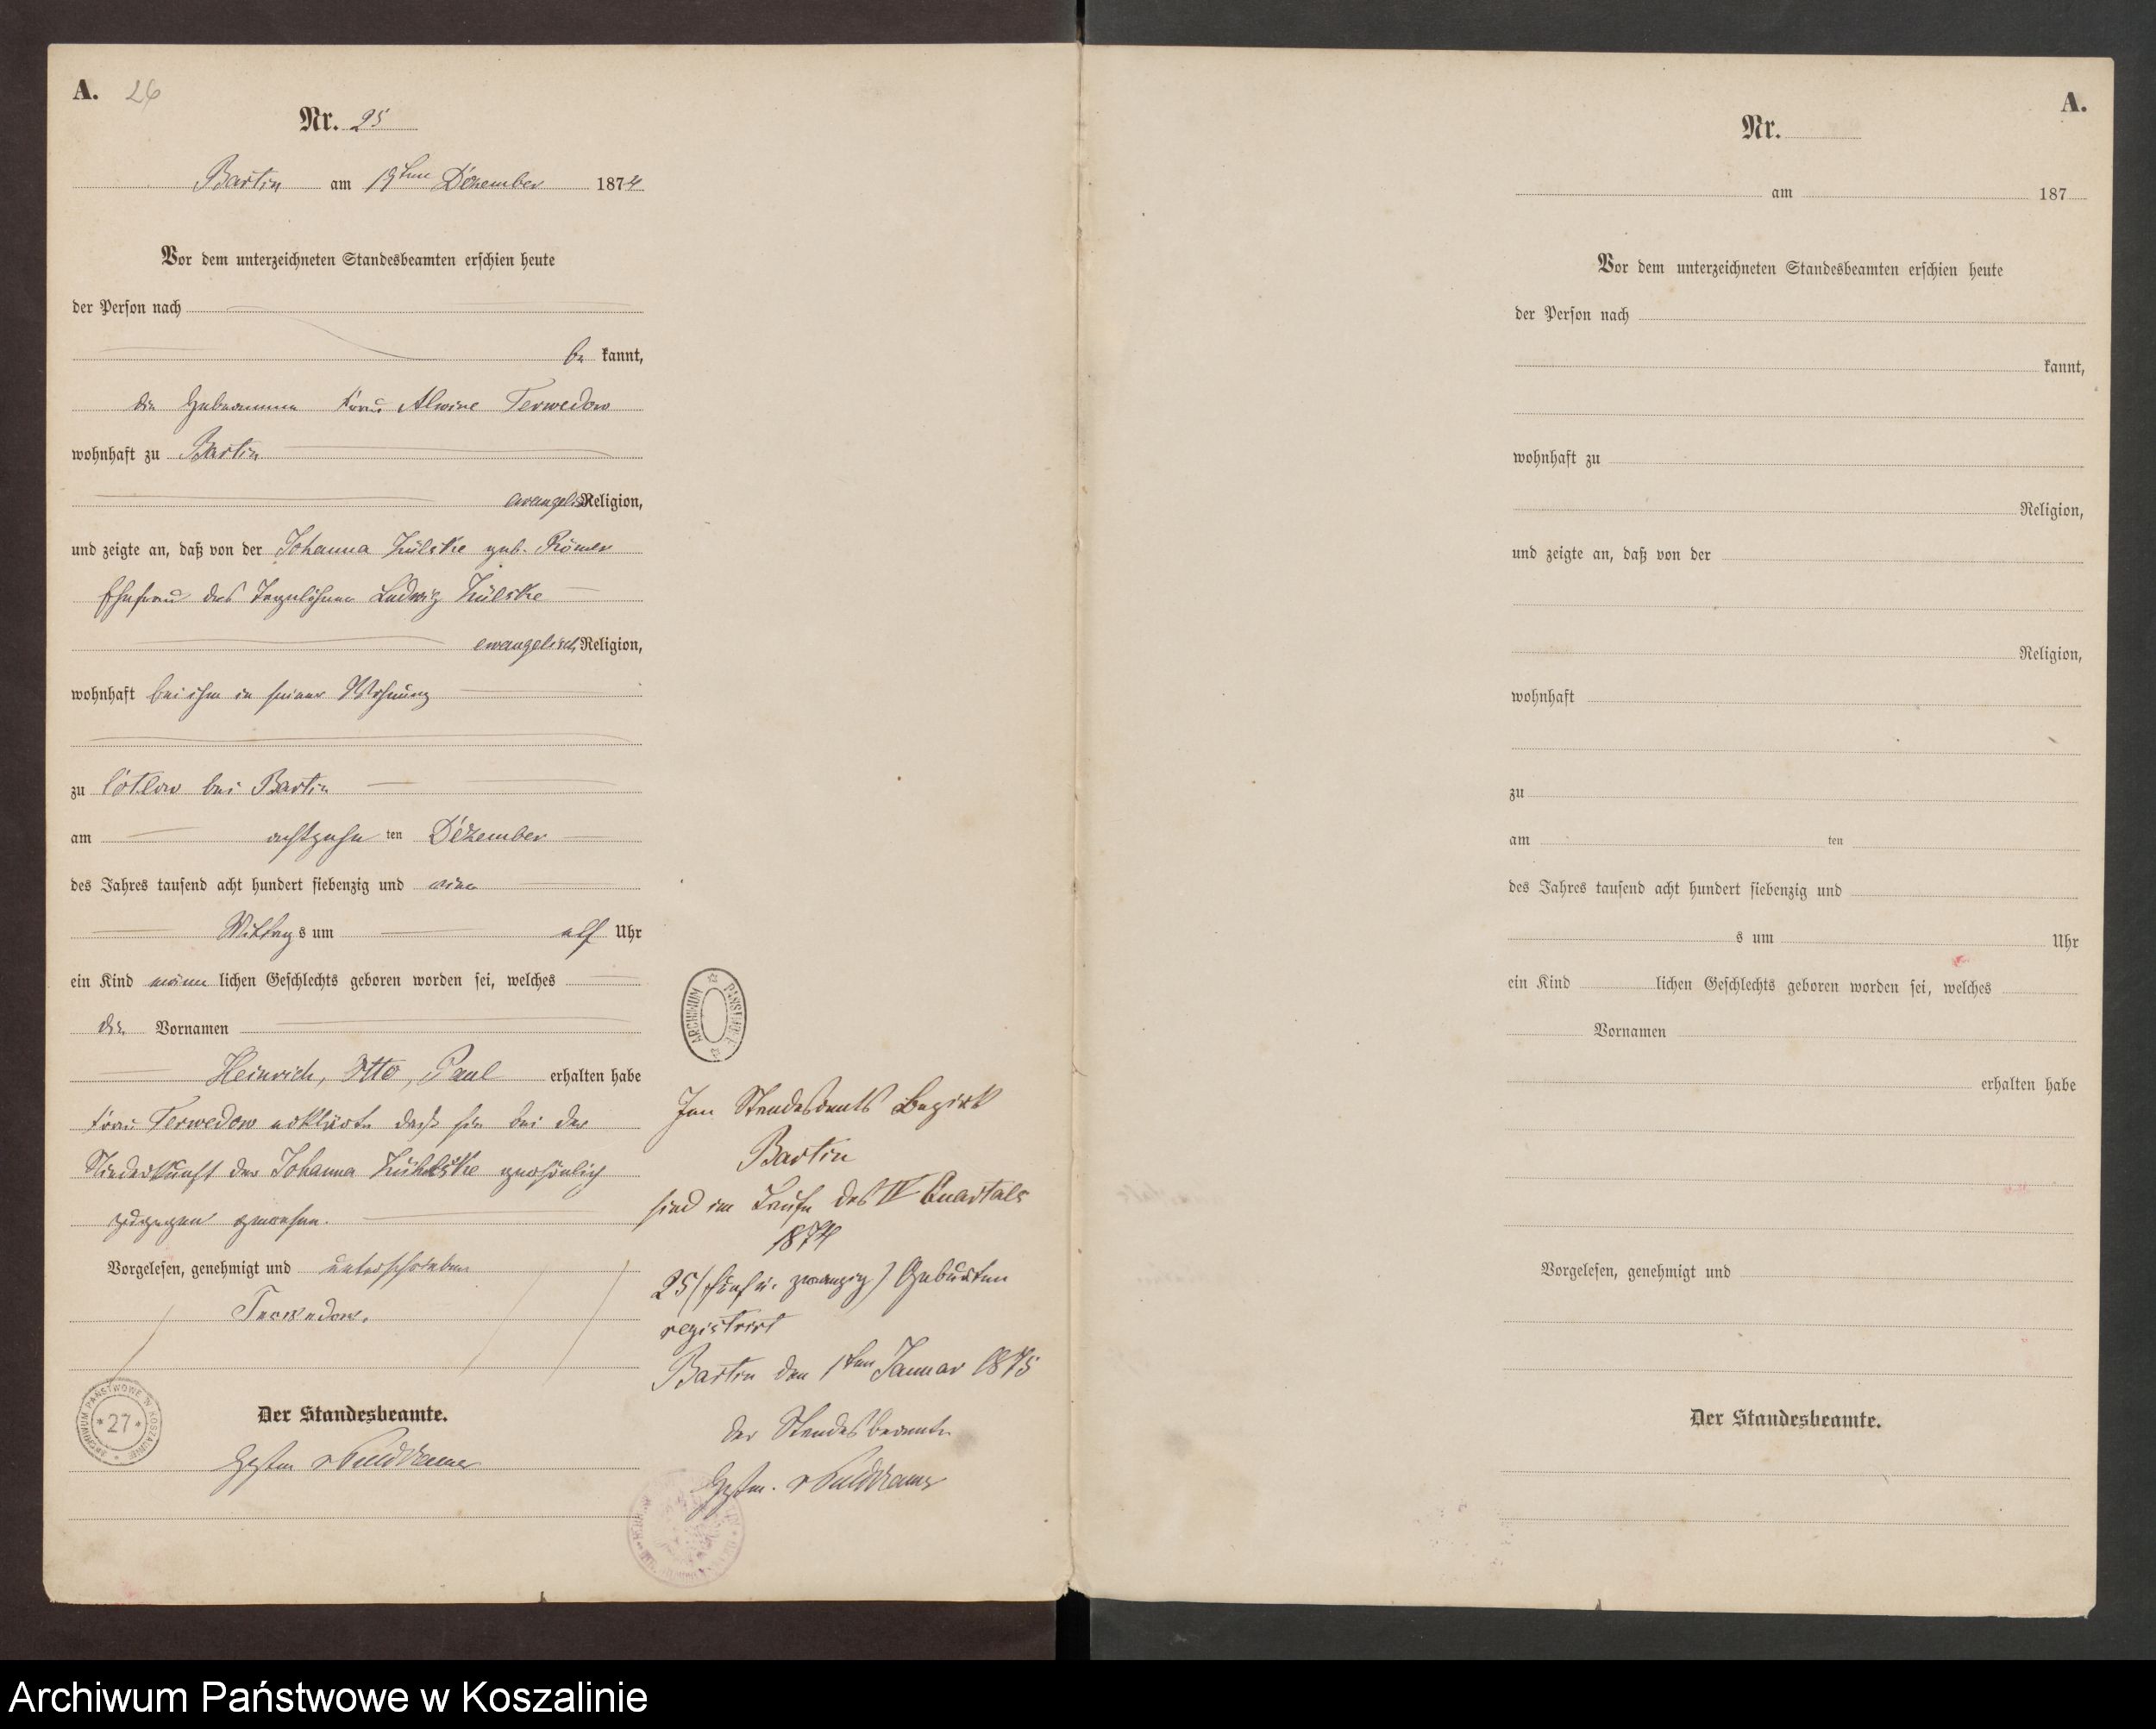 A. 26
Nr. 25
Bartin am 19ten Dezember 1874
Vor dem unterzeichneten Standesbeamten erschien heute
der Person nach
be kannt,
die Hebeamme Frau Alwine Terwedow
wohnhaft zu Bartin
evangelisch Religion,
und zeigte an, daß von der Johanna Zülske geb. Römer
Ehefrau des Tagelöhner Ludwig Zülske
evangelisch Religion,
wohnhaft bei ihm in seiner Wohnung
zu bei Bartin
am achtzehn ten Dezember
des Jahres tausend acht hundert siebenzig und vier
Mittag s um elf Uhr
ein Kind männ lichen Geschlechts geboren worden sei, welches
die Vornamen
Heinrich, Otto, Paul erhalten habe
Frau Terwedow erklärte daß sie bei der
Niederkunft der Johanna persönlich
zugegen gewesen.
Vorgelesen, genehmigt und unterschrieben
Terwedow.
Der Standesbeamte.
ARCHIWUM PAŃSTWOWE W KOSZALINIE
* 27 *
ARCHIWUM PAŃSTWOWE
Im Standesamts Bezirk
Bartin
sind im Laufe des IV Quartals
1874
25 (fünf u. zwanzig) Geburten
registrirt
Bartin den 1ten Januar 1875
Der Standesbeamte
A.
Nr.
am 187
Vor dem unterzeichneten Standesbeamten erschien heute
der Person nach
kannt,
wohnhaft zu
Religion,
und zeigte an, daß von der
Religion,
wohnhaft
zu
am ten
des Jahres tausend acht hundert siebenzig und
s um Uhr
ein Kind lichen Geschlechts geboren worden sei, welches
Vornamen
erhalten habe
Vorgelesen, genehmigt und
Der Standesbeamte.
Archiwum Państwowe w Koszalinie